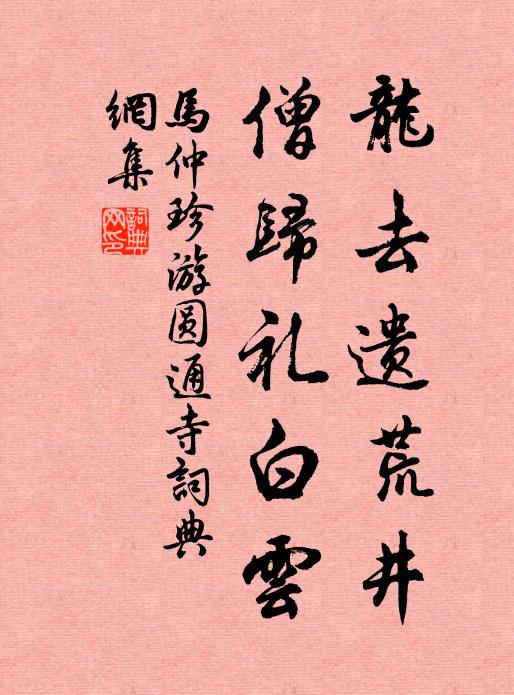 龍去遺荒井
僧歸礼白雲
馬仲珍游圓通寺詞典
網集
詞典網印